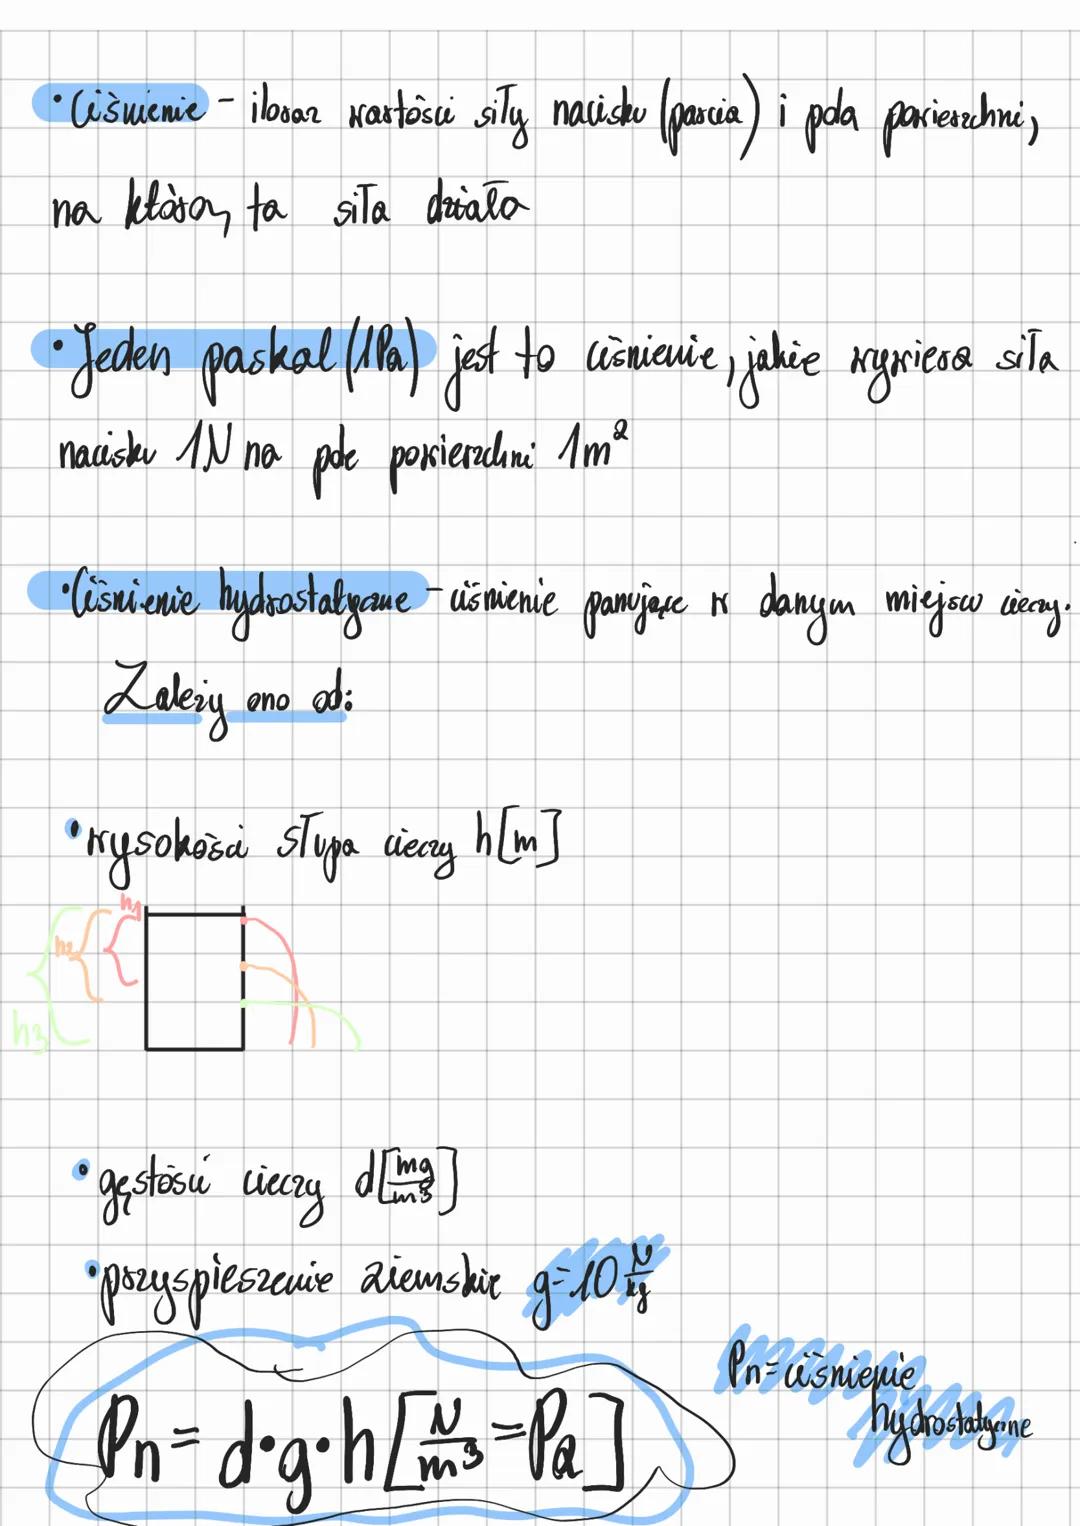 • Ciśnienie - iloraz wartości siły nacisku (parcia) i pola powierzchni,
na którą ta siła działa
• Jeden paskal (1Pa) jest to ciśnienie, jakie wywiera siła
nacisku 1N na pole powierzchni 1m²
• Ciśnienie hydrostatyczne - ciśnienie panujące w danym miejscu cieczy.
Zależy ono od:
• wysokości słupa cieczy h[m]
h1
h2
h3
• gęstości cieczy d[mg/m³]
• przyspieszenie ziemskie g=10 N/kg
Pn = ciśnienie
hydrostatyczne
Pn = d•g•h [N/m³ = Pa]